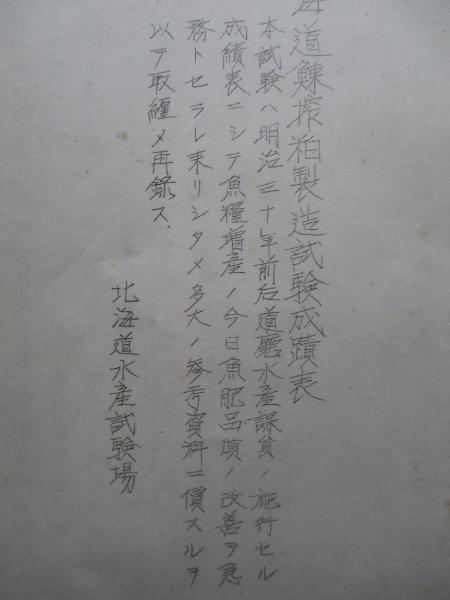 海道鰊搾粕製造試験成蹟表
本試験ハ明治三十年前后道廳水産課員ノ施行セル
成績表ニシテ魚糧増産ノ今日魚肥品質ノ改善ヲ急
務トセラレ来リシタメ多大ノ参考資料ニ價スルヲ
以テ取纏メ再録ス.
北海道水産試験場